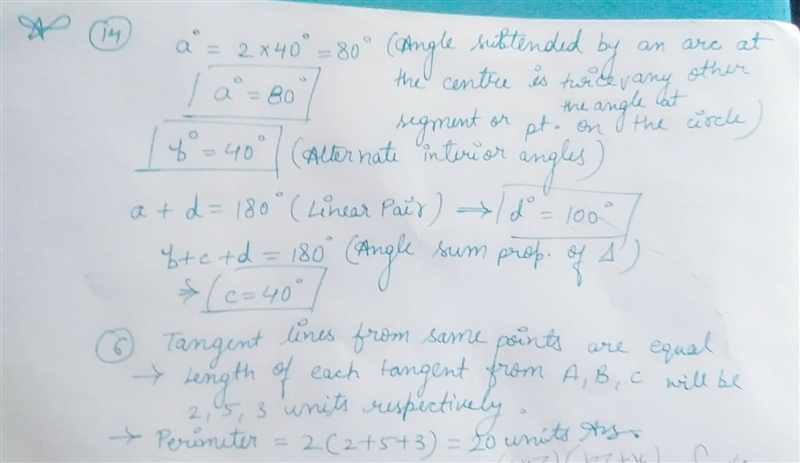 14
a° = 2 × 40° = 80° (Angle subtended by an arc at
the centre is twice, any other
the angle at
a° = 80°
segment or pt. on the circle)
b° = 40° (Alternate interior angles)
a + d = 180° (Linear Pair) → d° = 100°
b + c + d = 180° (Angle sum prop. of Δ)
⇒ c = 40°
6 Tangent lines from same points are equal
→ Length of each tangent from A, B, C will be
2, 5, 3 units respectively.
→ Perimeter = 2(2+5+3) = 20 units Ans.